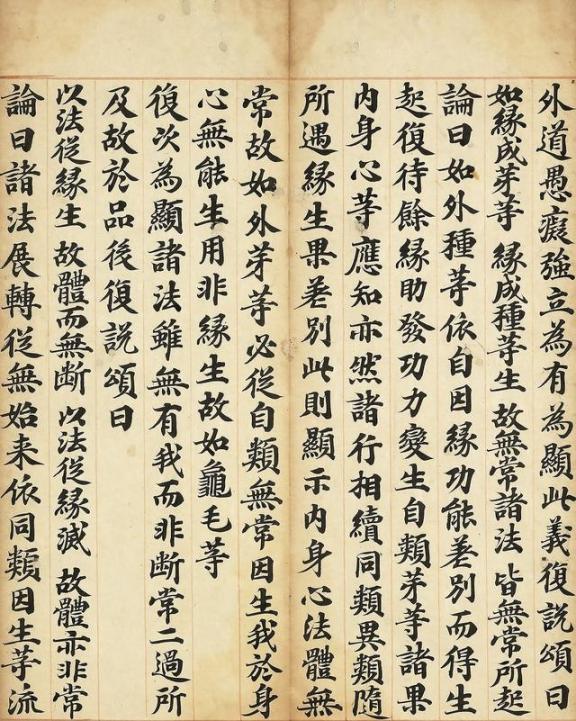 外道愚癡強立為有為顯此義復說頌曰
如緣成芽等 緣成種等生 故無常諸法 皆無常所起
論曰如外種等依自因緣功能差別而得生
起復待餘緣助發功力變生自類芽等諸果
內身心等應知亦然諸行相續同類異類隨
所遇緣生果差別此則顯示內身心法體無
常故如外芽等必從自類無常因生我於身
心無能生用非緣生故如龜毛等
復次為顯諸法雖無有我而非斷常二過所
及故於品後復說頌曰
以法從緣生 故體而無斷 以法從緣滅 故體亦非常
論曰諸法展轉從無始来依同類因生等流